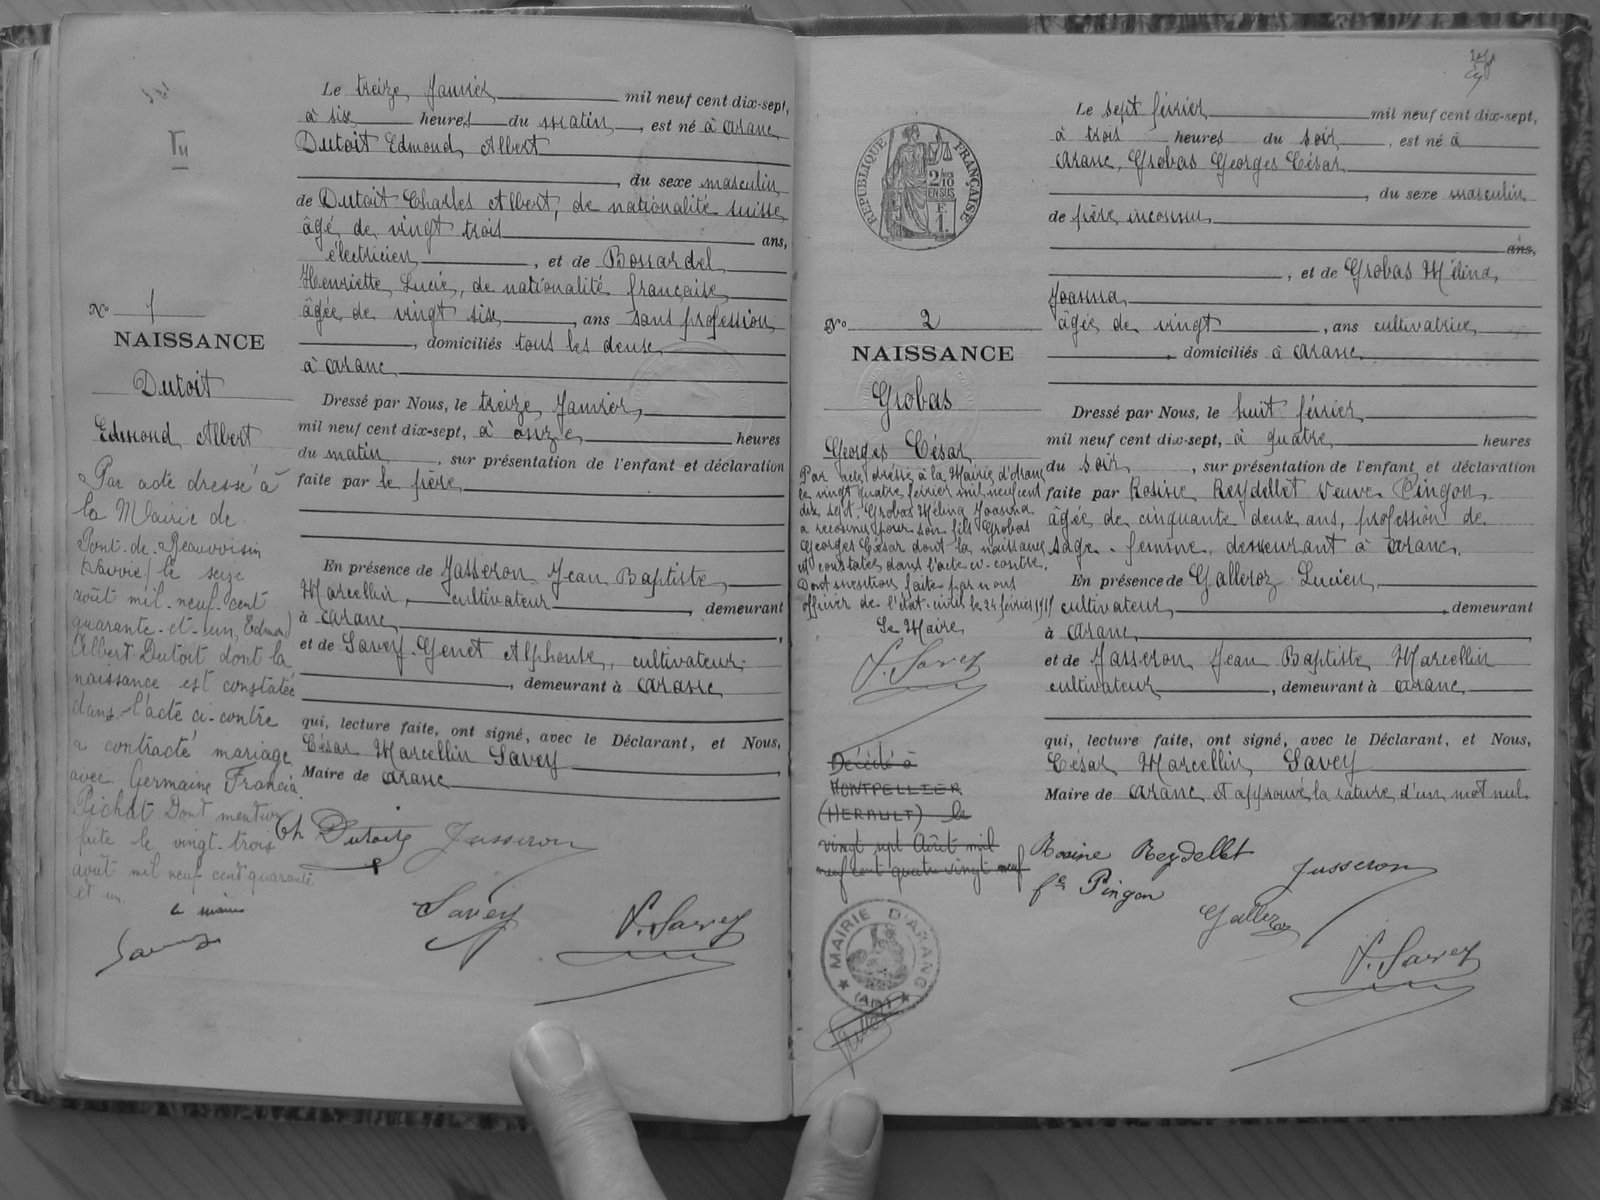 Vu
N° 1
NAISSANCE
Dutoit
Edmond Albert
Par acte dressé à
la Mairie de
Pont-de-Beauvoisin
le seize
août mil-neuf-cent
quarante-et-un, Edmond
Albert Dutoit dont la
naissance est constatée
dans l'acte ci-contre
a contracté mariage
avec Germaine Francia
Pichat Dont mention
faite le vingt-trois
août mil neuf cent quarante
et un
Le maire
Le treize Janvier mil neuf cent dix-sept,
à six heures du matin, est né à Aranc
Dutoit Edmond Albert
, du sexe masculin
de Dutoit Charles Albert, de nationalité suisse
âgé de vingt trois ans,
électricien, et de Bossardel
Henriette Lucie, de nationalité française
âgée de vingt six, ans sans profession
, domiciliés tous les deux
à Aranc
Dressé par Nous, le treize Janvier,
mil neuf cent dix-sept, à onze heures
du matin, sur présentation de l'enfant et déclaration
faite par le père
En présence de Jusseron Jean Baptiste
Marcellin, cultivateur, demeurant
à Aranc,
et de Savey-Genet Alphonse, cultivateur
, demeurant à Aranc
qui, lecture faite, ont signé, avec le Déclarant, et Nous,
César Marcellin Savey,
Maire de Aranc
Ch Dutoit Jusseron
Savey
Savey
RÉPUBLIQUE FRANÇAISE
2/10
EN SUS
1
N° 2
NAISSANCE
Grobas
Georges César
Par acte dressé à la Mairie d'Aranc
le vingt quatre février mil neuf cent
dix sept, Grobas Mélina Joanna
a reconnu pour son fils Grobas
Georges César dont la naissance
est constatée dans l'acte ci-contre.
Dont mention faite par nous
officier de l'état-civil le 24 février 1917
Le Maire
Savey
Décédé à
MONTPELLIER
(HERAULT) le
vingt sept Août mil
neuf cent quatre vingt neuf
MAIRIE D'ARANC
(AIN)
Le sept février mil neuf cent dix-sept,
à trois heures du soir, est né à
Aranc, Grobas Georges César
, du sexe masculin
de père inconnu
ans,
, et de Grobas Mélina
Joanna
âgée de vingt, ans cultivatrice
, domiciliés à Aranc
Dressé par Nous, le huit février
mil neuf cent dix-sept, à quatre heures
du soir, sur présentation de l'enfant et déclaration
faite par Rosine Reydellet veuve Pingon
âgée de cinquante deux ans, profession de
sage-femme, demeurant à Aranc.
En présence de Galleroz Lucien
cultivateur, demeurant
à Aranc,
et de Jusseron Jean Baptiste Marcellin
cultivateur, demeurant à Aranc
qui, lecture faite, ont signé, avec le Déclarant, et Nous,
César Marcellin Savey
Maire de Aranc et approuvé la rature d'un mot nul.
Rosine Reydellet Jusseron
Pingon
Galleroz
Savey